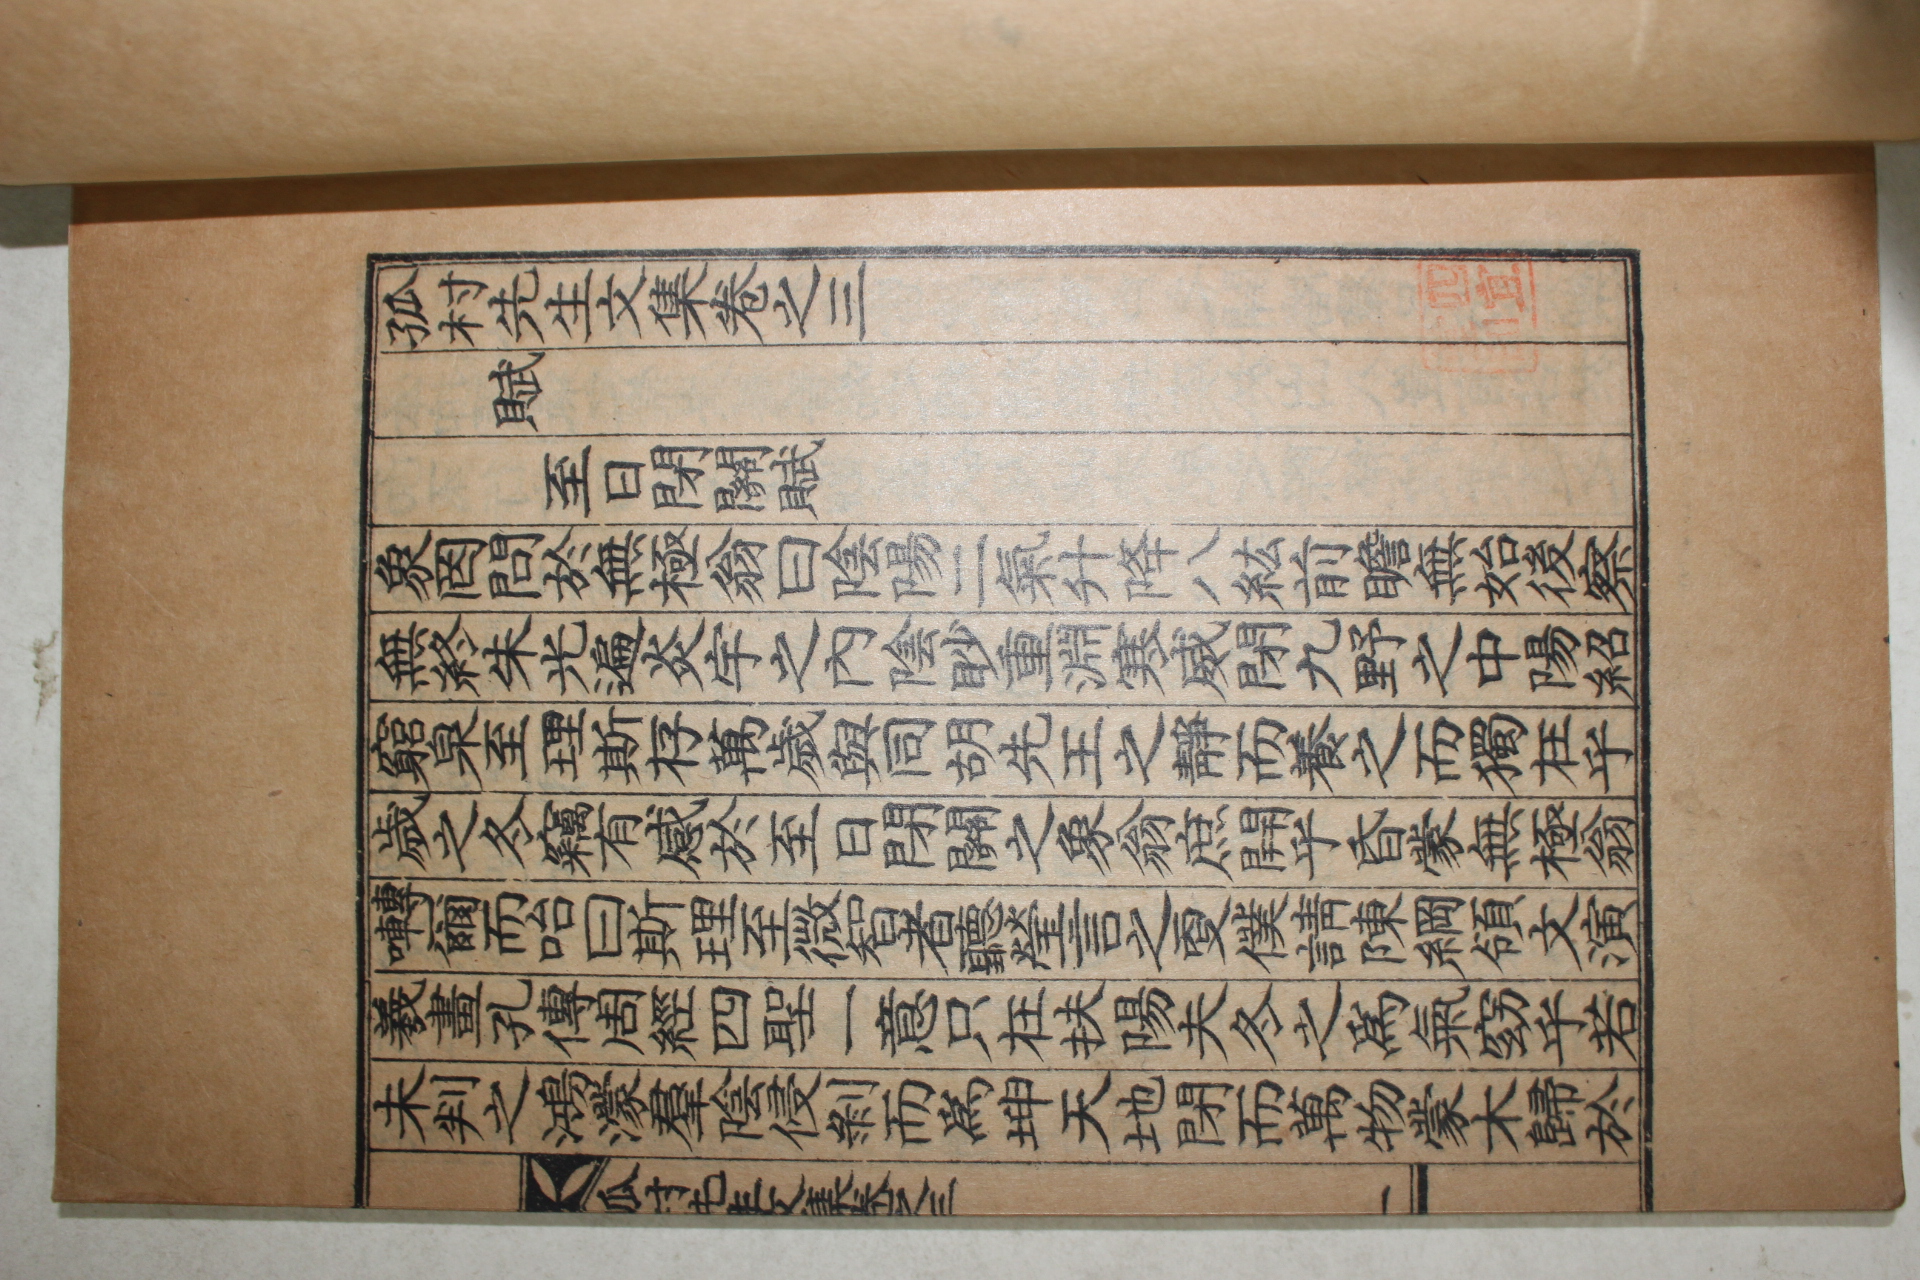 孤村先生文集卷之三
賦
至日閉關賦
象罔問於無極翁曰陰陽二氣升降八紘前瞻無始後察
無終朱光遍炎宇之內陰眇重淵寒威閉九野之中陽紹
窮泉至理斯存萬歲與同胡先王之靜而養之而獨在乎
歲之冬竊有感於至日閉關之象翁庶開乎昏蒙無極翁
囀爾而咍曰斯理至微智者聽瑩言之更僕請陳綱領文演
羲畫孔傳周經四聖一意只在扶陽夫冬之爲氣窈乎若
未判之鴻濛羣陰侵剝而爲坤天地閉而萬物蒙木歸於
孤村先生文集卷之三
一